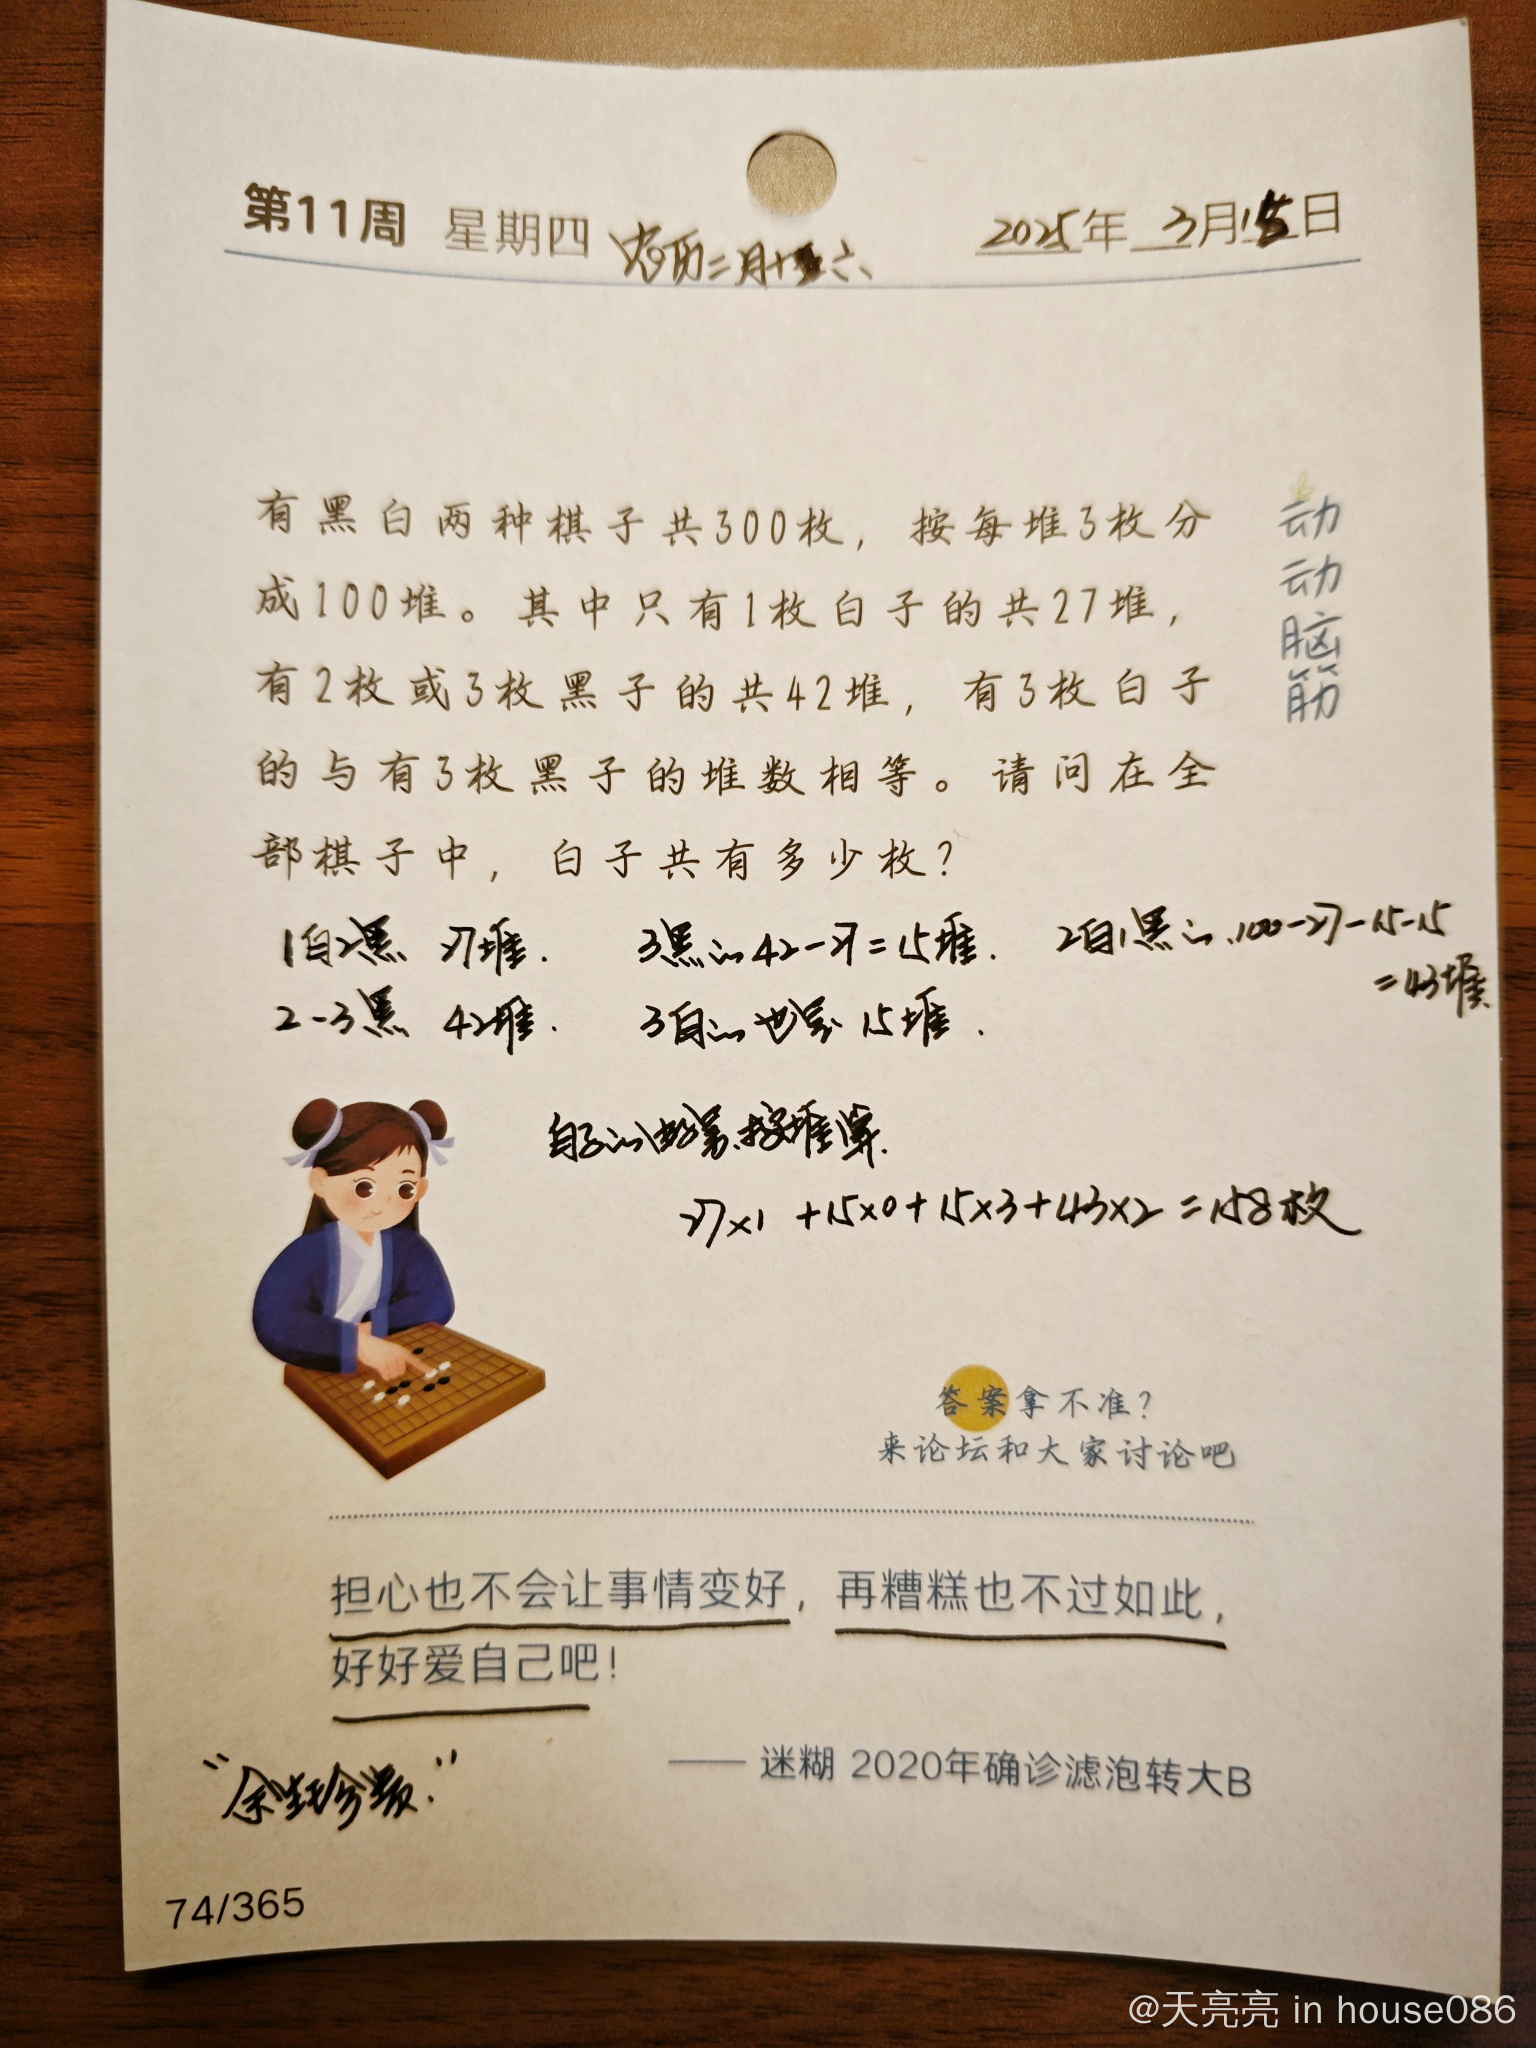 第11周 星期四 农历二月十六 2025年 3月15日
有黑白两种棋子共300枚，按每堆3枚分
成100堆。其中只有1枚白子的共27堆，
有2枚或3枚黑子的共42堆，有3枚白子
的与有3枚黑子的堆数相等。请问在全
部棋子中，白子共有多少枚？
动动脑筋
1白2黑 27堆. 3黑的42-27=15堆. 2白1黑的.100-27-15-15
=43堆
2-3黑 42堆. 3白的也是15堆.
白子的 按堆算.
27×1 +15×0+15×3+43×2=158枚
答案拿不准？
来论坛和大家讨论吧
担心也不会让事情变好，再糟糕也不过如此，
好好爱自己吧！
—— 迷糊 2020年确诊滤泡转大B
"余生珍爱."
74/365
@天亮亮 in house086